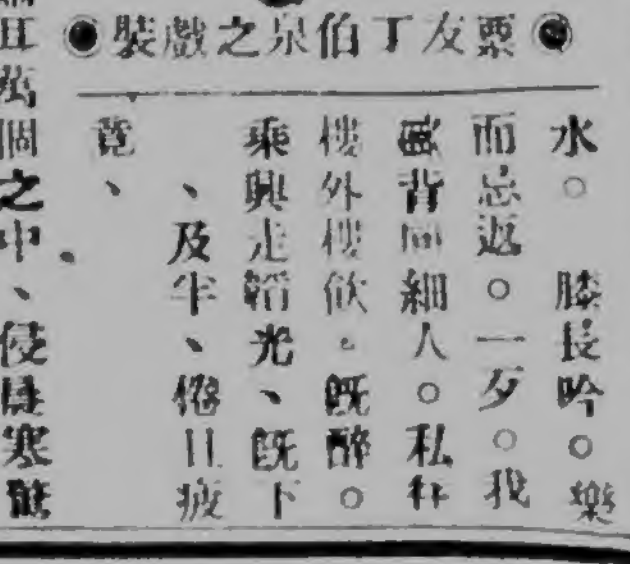 票友丁伯泉之戲裝
水。膝長吟。樂
而忘返。一夕。我
背面細人。私
樓外樓飲。既醉。
乘興走韜光、既下
、及半、倦且疲
竟、
萬個之中、侵寒